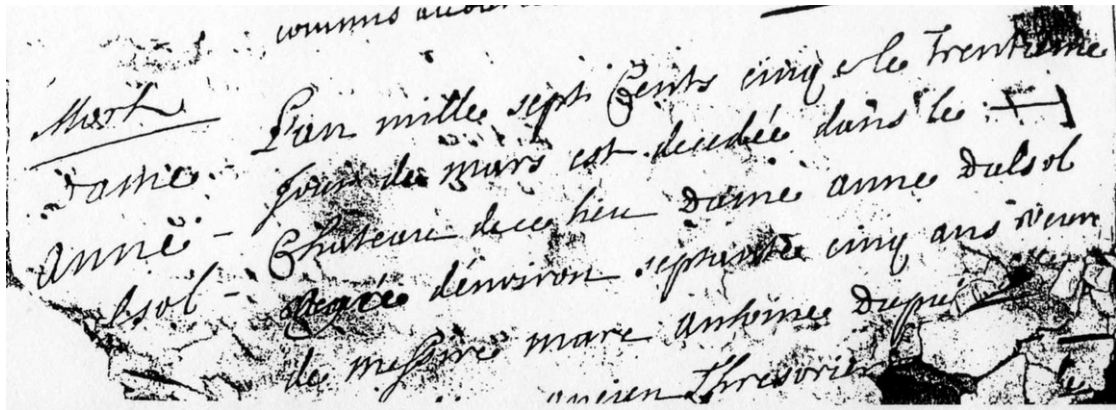 communs
Mort
Dame
Anne
L'an mille sept Cents cinq et le trentieme
Jour de mars est decedée dans le
Chateau de ce lieu Dame anne Dalsol
agée d'environ septante cinq ans veuve
de messire marc antoine Dupui
ancien Thresorier